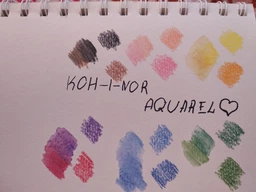 KOH-I-NOR
AQUAREL♡